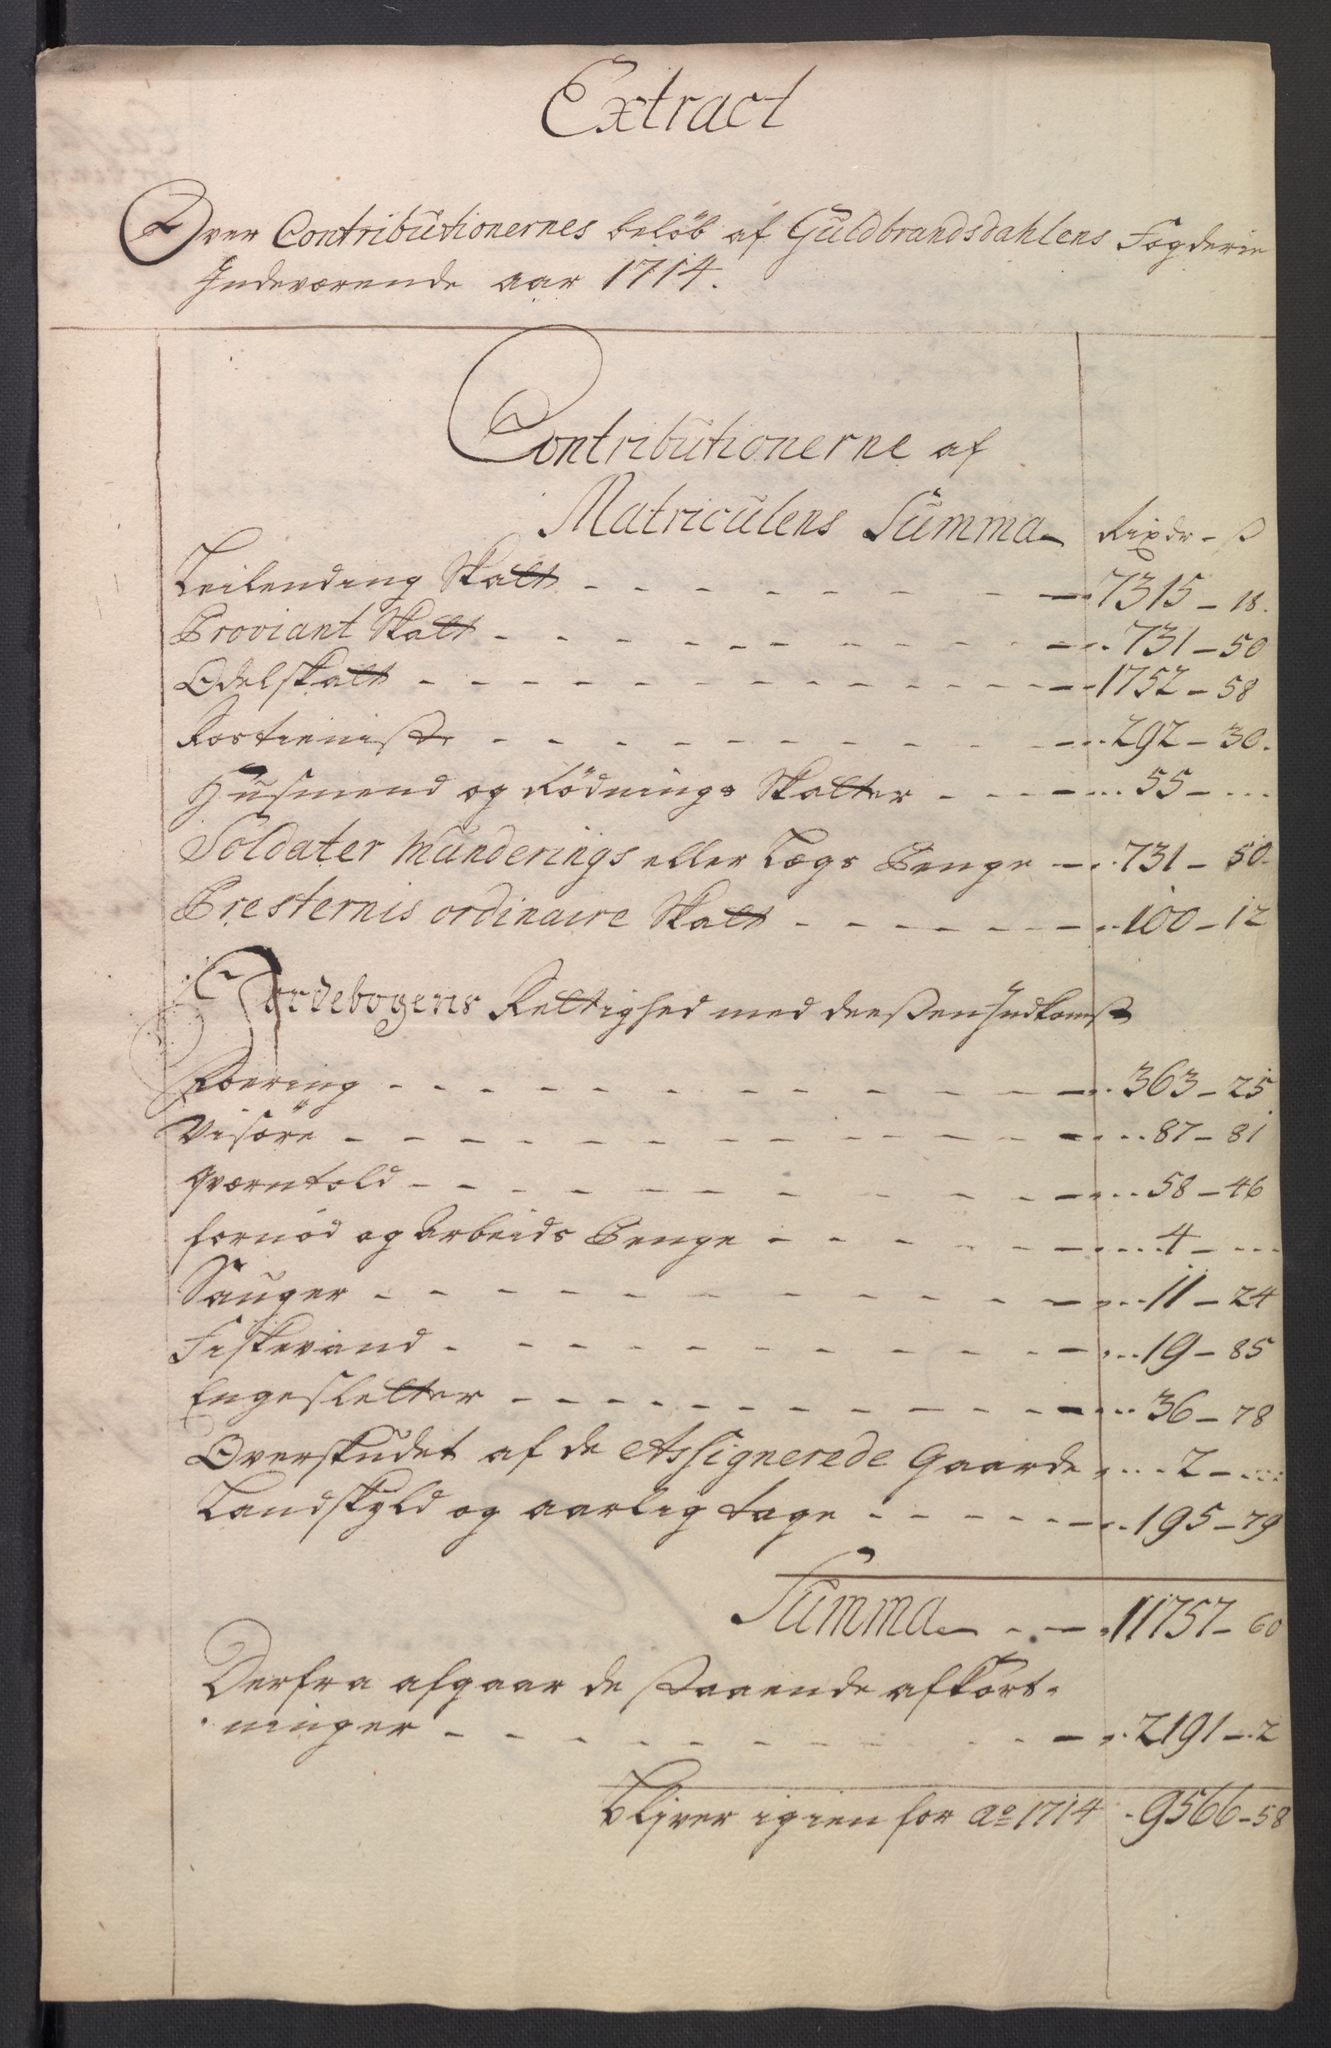 Extract
Over Contributionernes beløb af Guldbrandsdahlens Fogderie
Indeværende aar 1714.
Contributionerne af
Matriculens Summa Rixdr - ß
Leilending Skatt - 7315 - 18.
Proviant Skatt - 731 - 50
Odelskatt - 1752 - 58
Rostieniste - 292 - 30.
Husmend og Rødnings Skatter - 55 - ...
Soldater Munderings eller Lægs Penge - 731 - 50.
Presternis ordinaire Skatt - 100 - 12
Jordebogens Rettighed med deesßen Indkomst
Foering - 363 - 25
Visøre - 87 - 81
qværntold - 58 - 46
fornød og Arbeids Penge - 4 - ...
Sauger - 11 - 24
Fiskevand - 19 - 85
Engesletter - 36 - 78
Overskudet af de Assignerede Gaarde - 2 - ...
Landskyld og aarlig tage - 195 - 79
Summa - 11757 - 60
Derfra afgaar de staaende afkort-
ninger - 2191 - 2
bljver igien for Ao 1714 - 9566 - 58